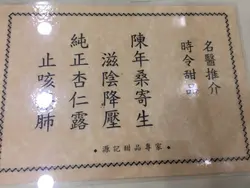 名醫推介
時令甜品
陳年桑寄生
滋陰降壓
純正杏仁露
止咳肺
源記甜品專家